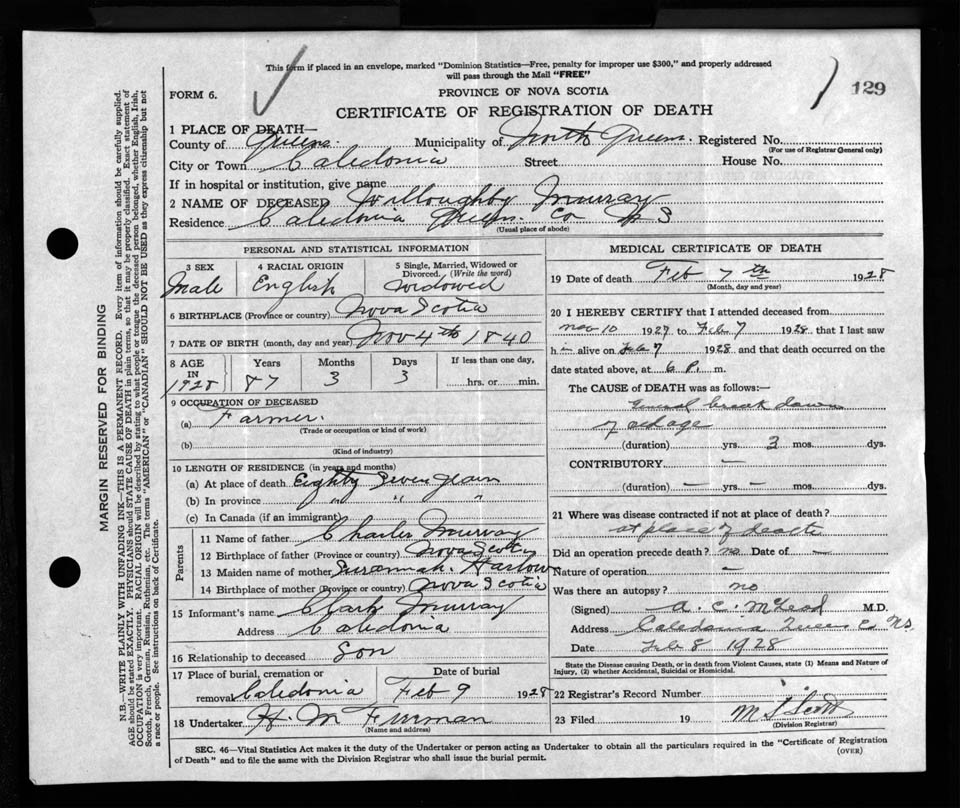 This form if placed in an envelope, marked "Dominion Statistics—Free, penalty for improper use $300," and properly addressed
will pass through the Mail "FREE"
129
FORM 6.
PROVINCE OF NOVA SCOTIA
CERTIFICATE OF REGISTRATION OF DEATH
1 PLACE OF DEATH—
County of Queens. Municipality of North Queens. Registered No.
(For use of Registrar General only)
City or Town Caledonia Street House No.
If in hospital or institution, give name
2 NAME OF DECEASED Willoughby Murray
Residence Caledonia Queens Co N S
(Usual place of abode)
PERSONAL AND STATISTICAL INFORMATION
3 SEX 4 RACIAL ORIGIN 5 Single, Married, Widowed or
Divorced, (Write the word)
Male English Widowed
6 BIRTHPLACE (Province or country) Nova Scotia
7 DATE OF BIRTH (month, day and year) Nov 4th 1840
8 AGE IN 1928 Years Months Days If less than one day,
87 3 3 hrs. or min.
9 OCCUPATION OF DECEASED
(a) Farmer.
(Trade or occupation or kind of work)
(b)
(Kind of industry)
10 LENGTH OF RESIDENCE (in years and months)
(a) At place of death Eighty Seven years
(b) In province " " "
(c) In Canada (if an immigrant)
Parents
11 Name of father Charles Murray
12 Birthplace of father (Province or country) Nova Scotia
13 Maiden name of mother Susannah Harlow
14 Birthplace of mother (Province or country) Nova Scotia
15 Informant's name Clark Murray
Address Caledonia
16 Relationship to deceased Son
17 Place of burial, cremation or Date of burial
removal Caledonia Feb 9 1928
18 Undertaker H. M Furman
(Name and address)
MEDICAL CERTIFICATE OF DEATH
19 Date of death Feb 7th 1928
(Month, day and year)
20 I HEREBY CERTIFY that I attended deceased from
Nov 10 1927 to Feb 7 1928 that I last saw
h im alive on Feb 7 1928 and that death occurred on the
date stated above, at 6 P. m.
The CAUSE of DEATH was as follows:—
General break down
of old age
(duration) yrs. 3 mos. dys.
CONTRIBUTORY —
(duration) — yrs. — mos. dys.
21 Where was disease contracted if not at place of death?
at place of death
Did an operation precede death? no Date of —
Nature of operation —
Was there an autopsy? no
(Signed) A. C. McLeod M.D.
Address Caledonia Queens Co N.S.
Date Feb 8 1928
State the Disease causing Death, or in death from Violent Causes, state (1) Means and Nature of
Injury, (2) whether Accidental, Suicidal or Homicidal.
22 Registrar's Record Number
23 Filed 19
(Division Registrar)
SEC. 46—Vital Statistics Act makes it the duty of the Undertaker or person acting as Undertaker to obtain all the particulars required in the "Certificate of Registration
of Death" and to file the same with the Division Registrar who shall issue the burial permit.
(OVER)
MARGIN RESERVED FOR BINDING
N.B.—WRITE PLAINLY WITH UNFADING INK—THIS IS A PERMANENT RECORD. Every item of information should be carefully supplied.
AGE should be stated EXACTLY. PHYSICIANS should STATE CAUSE OF DEATH in plain terms, so that it may be properly classified. Exact statement of
OCCUPATION is very important. RACIAL ORIGIN will be described by stating to what people or tongue the deceased person belonged, whether English, Irish,
Scotch, French, German, Russian, Ruthenian, etc. The terms "AMERICAN" or "CANADIAN" SHOULD NOT BE USED as they express citizenship but not
a race or people. See instructions on back of Certificate.